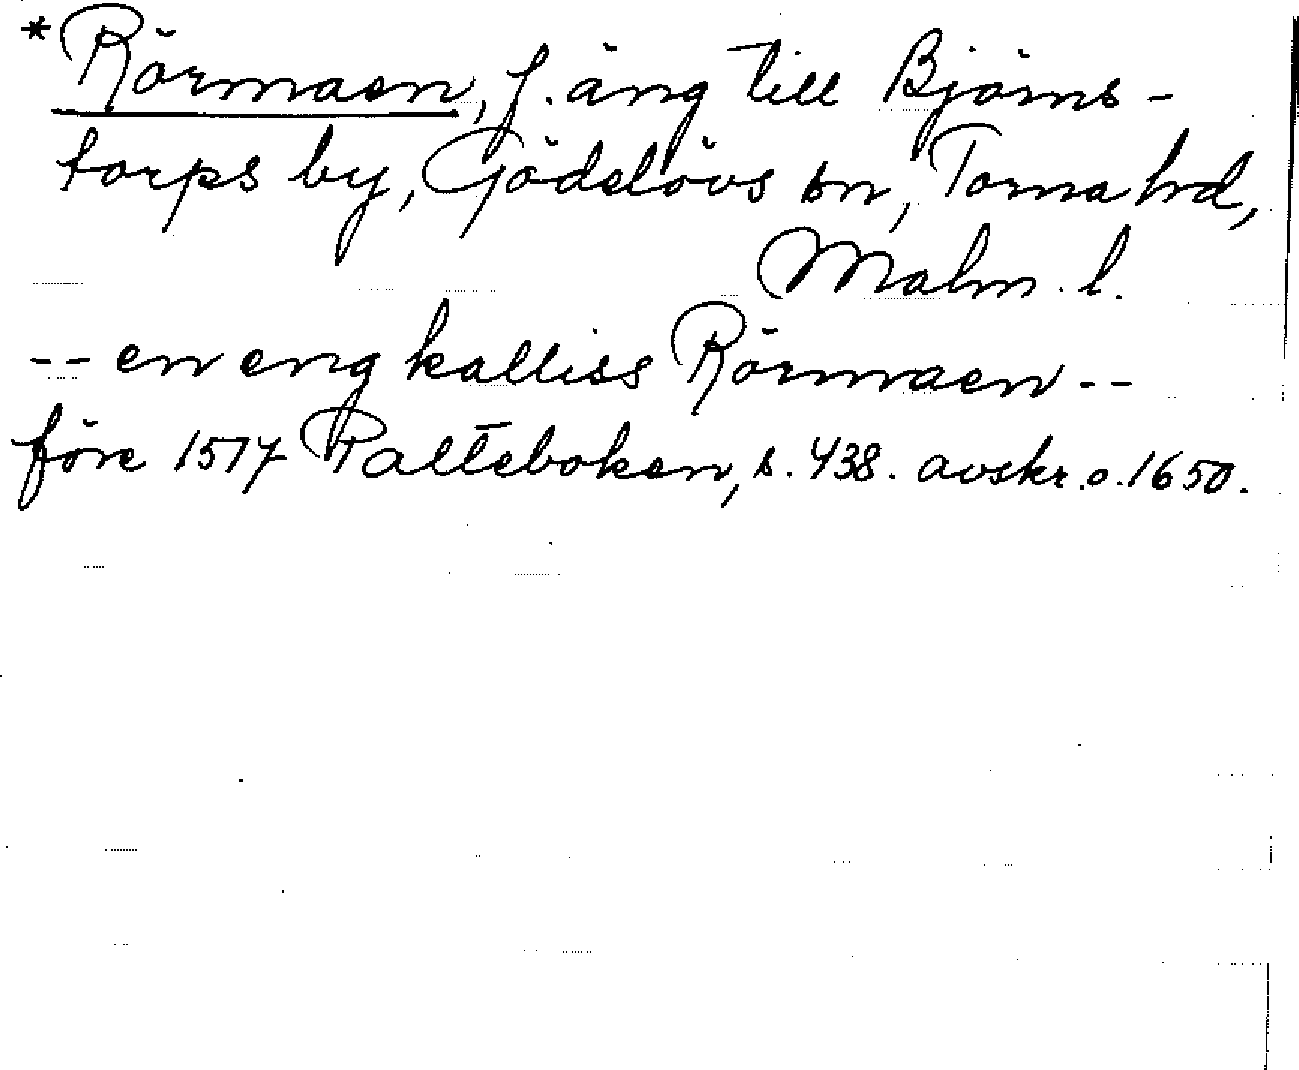 *Rörmaen, f. äng till Björns-
torps by, Gödelövs sn, Torna hd,
Malm. l.
-- en eng kalliss Rörmaen --
före 1517 Palteboken, s. 438. avskr. o. 1650.